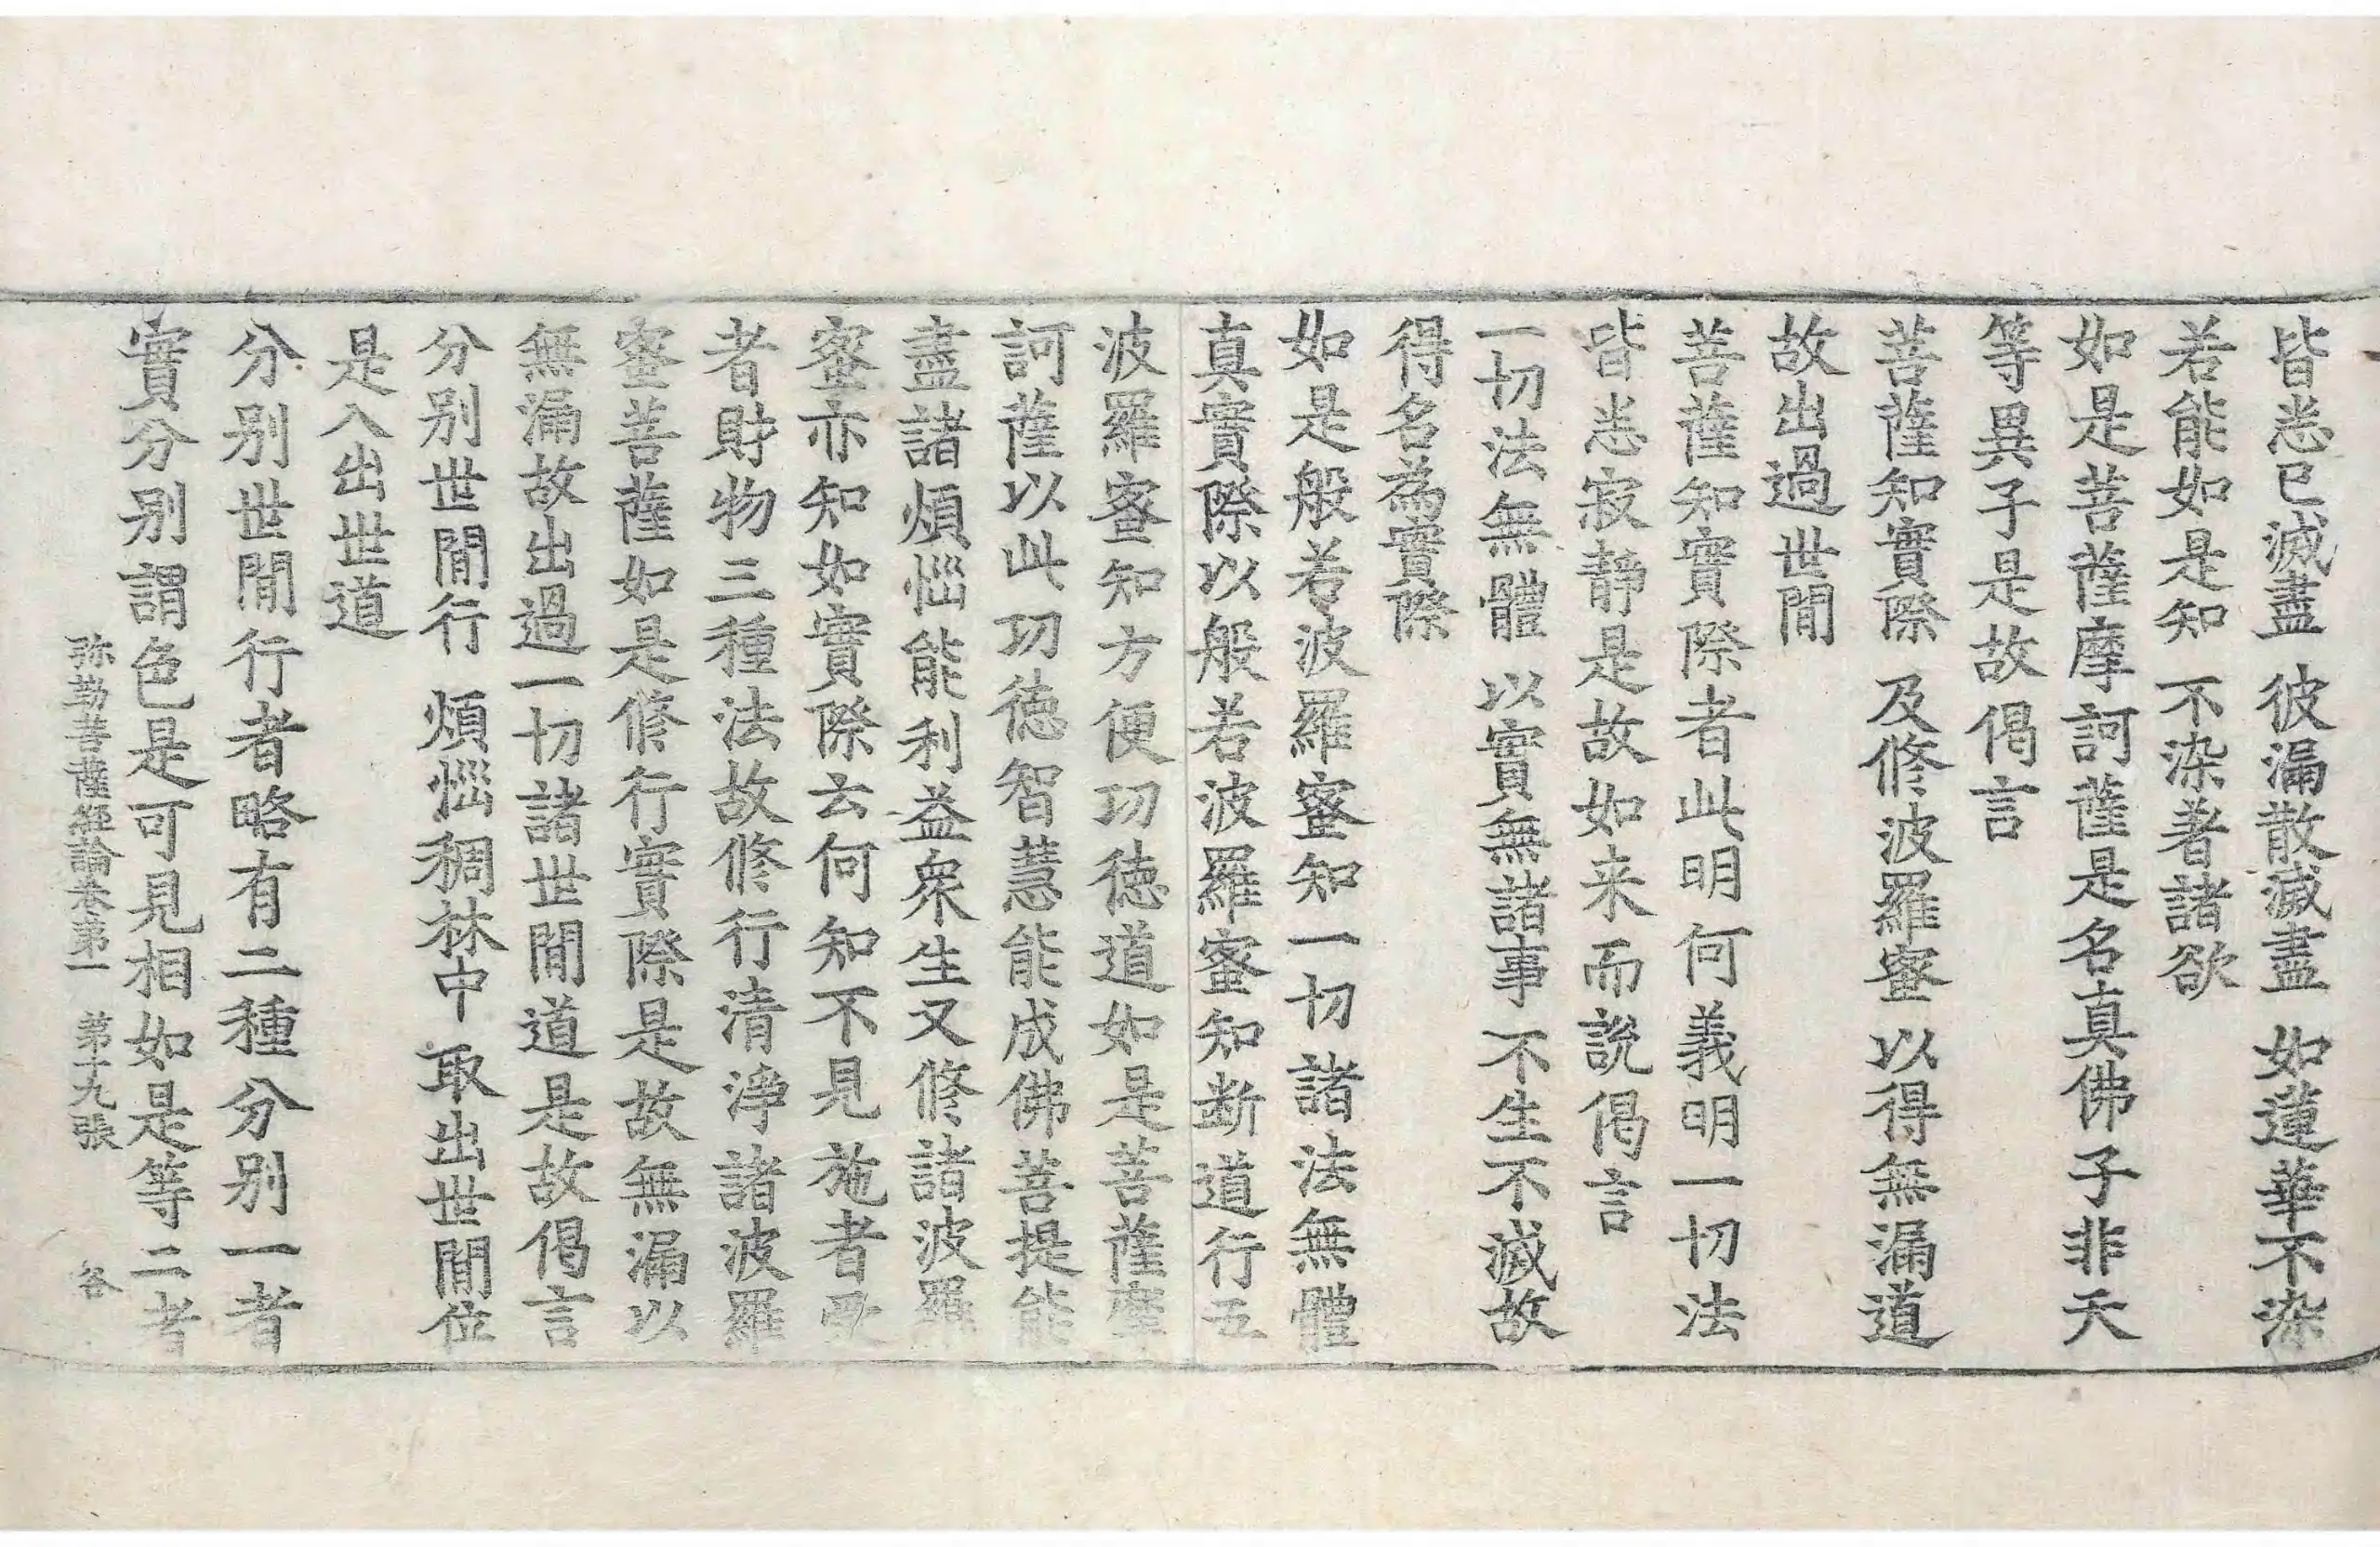 皆悉已滅盡 彼漏散滅盡 如蓮華不染
若能如是知 不染著諸欲
如是菩薩摩訶薩是名真佛子非天
等異子是故偈言
菩薩知實際 及修波羅蜜 以得無漏道
故出過世間
菩薩知實際者此明何義明一切法
皆悉寂靜是故如来而說偈言
一切法無體 以實無諸事 不生不滅故
得名為實際
如是般若波羅蜜知一切諸法無體
真實際以般若波羅蜜知断道行五
波羅蜜知方便功德道如是菩薩摩
訶薩以此功德智慧能成佛菩提能
盡諸煩惱能利益衆生又修諸波羅
蜜亦知如實際云何知不見施者受
者財物三種法故修行清淨諸波羅
蜜菩薩如是修行實際是故無漏以
無漏故出過一切諸世間道是故偈言
分別世間行 煩惱稠林中 取出世間位
是入出世道
分別世間行者略有二種分別一者
實分別謂色是可見相如是等二者
弥勒菩薩經論卷第一 第十九張 谷